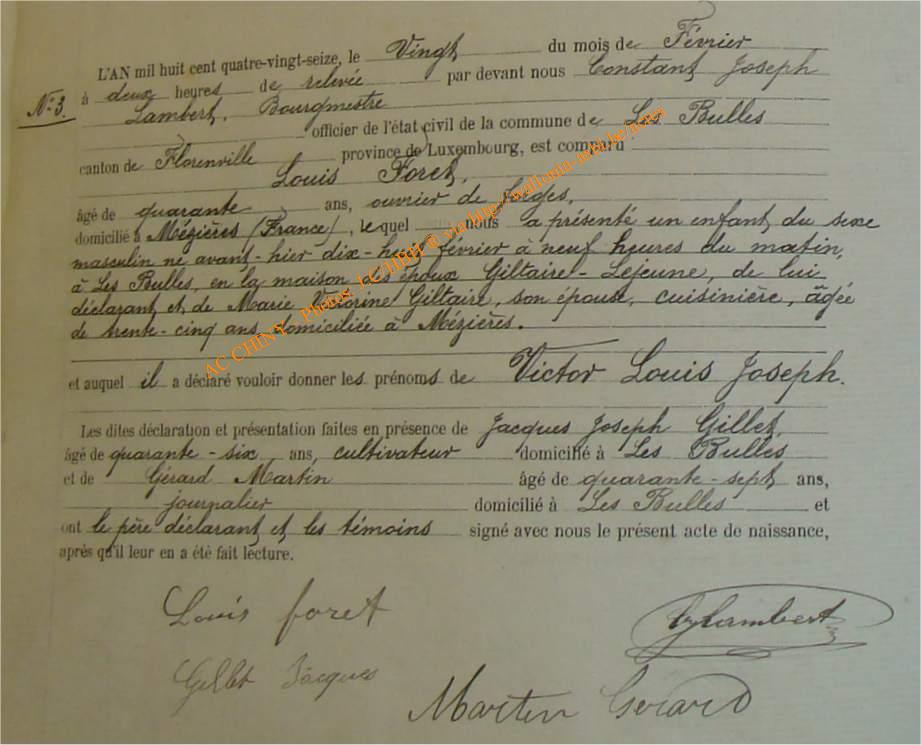 L'AN mil huit cent quatre-vingt-seize, le Vingt du mois de Février
N° 3.
à deux heures de relevée par devant nous Constant Joseph
Lambert, Bourgmestre
officier de l'état civil de la commune de Les Bulles
canton de Florenville province de Luxembourg, est comparu
Louis Foret,
âgé de quarante ans, ouvrier de forges,
domicilié à Mézières (France), lequel nous a présenté un enfant du sexe
masculin né avant-hier dix-huit février à neuf heures du matin,
à Les Bulles, en la maison des époux Giltaire-Lejeune, de lui
déclarant et de Marie Victorine Giltaire, son épouse, cuisinière, âgée
de trente-cinq ans domiciliée à Mézières.
et auquel il a déclaré vouloir donner les prénoms de Victor Louis Joseph.
Les dites déclaration et présentation faites en présence de Jacques Joseph Gillet,
âgé de quarante-six ans, cultivateur domicilié à Les Bulles
et de Gérard Martin âgé de quarante-sept ans,
journalier domicilié à Les Bulles et
ont le père déclarant et les témoins signé avec nous le présent acte de naissance,
après qu'il leur en a été fait lecture.
Louis foret
Lambert
Gillet Jacques
Martin Gerard
AC CHINY Photos via http://wallonia-asbl.be/actes